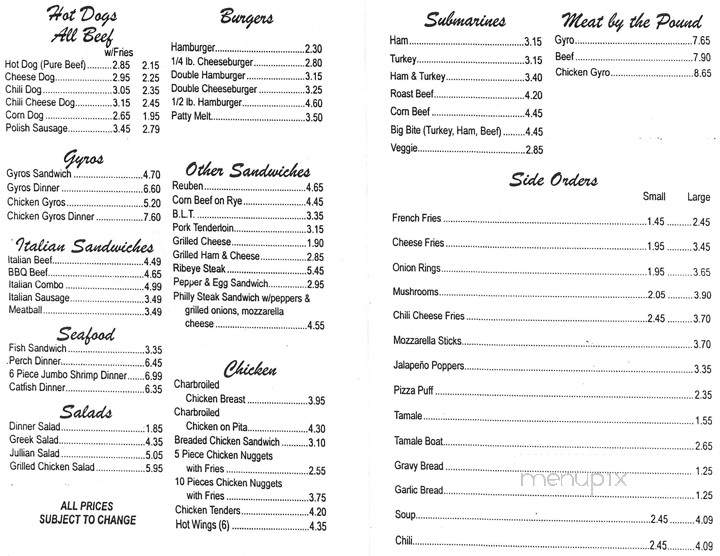 Hot Dogs
All Beef
w/Fries
Hot Dog (Pure Beef) 2.85 2.15
Cheese Dog 2.95 2.25
Chili Dog 3.05 2.35
Chili Cheese Dog 3.15 2.45
Corn Dog 2.65 1.95
Polish Sausage 3.45 2.79
Gyros
Gyros Sandwich 4.70
Gyros Dinner 6.60
Chicken Gyros 5.20
Chicken Gyros Dinner 7.60
Italian Sandwiches
Italian Beef 4.49
BBQ Beef 4.65
Italian Combo 4.99
Italian Sausage 3.49
Meatball 3.49
Seafood
Fish Sandwich 3.35
Perch Dinner 6.45
6 Piece Jumbo Shrimp Dinner 6.99
Catfish Dinner 6.35
Salads
Dinner Salad 1.85
Greek Salad 4.35
Jullian Salad 5.05
Grilled Chicken Salad 5.95
ALL PRICES
SUBJECT TO CHANGE
Burgers
Hamburger 2.30
1/4 lb. Cheeseburger 2.80
Double Hamburger 3.15
Double Cheeseburger 3.25
1/2 lb. Hamburger 4.60
Patty Melt 3.50
Other Sandwiches
Reuben 4.65
Corn Beef on Rye 4.45
B.L.T. 3.35
Pork Tenderloin 3.15
Grilled Cheese 1.90
Grilled Ham & Cheese 2.85
Ribeye Steak 5.45
Pepper & Egg Sandwich 2.95
Philly Steak Sandwich w/peppers &
grilled onions, mozzarella
cheese 4.55
Chicken
Charbroiled
Chicken Breast 3.95
Charbroiled
Chicken on Pita 4.30
Breaded Chicken Sandwich 3.10
5 Piece Chicken Nuggets
with Fries 2.55
10 Pieces Chicken Nuggets
with Fries 3.75
Chicken Tenders 4.20
Hot Wings (6) 4.35
Submarines
Ham 3.15
Turkey 3.15
Ham & Turkey 3.40
Roast Beef 4.20
Corn Beef 4.45
Big Bite (Turkey, Ham, Beef) 4.45
Veggie 2.85
Meat by the Pound
Gyro 7.65
Beef 7.90
Chicken Gyro 8.65
Side Orders
Small Large
French Fries 1.45 2.45
Cheese Fries 1.95 3.45
Onion Rings 1.95 3.65
Mushrooms 2.05 3.90
Chili Cheese Fries 2.45 3.70
Mozzarella Sticks 3.70
Jalapeño Poppers 3.35
Pizza Puff 2.35
Tamale 1.55
Tamale Boat 2.65
Gravy Bread 1.25
Garlic Bread 1.25
Soup 2.45 4.09
Chili 2.45 4.09
menupix